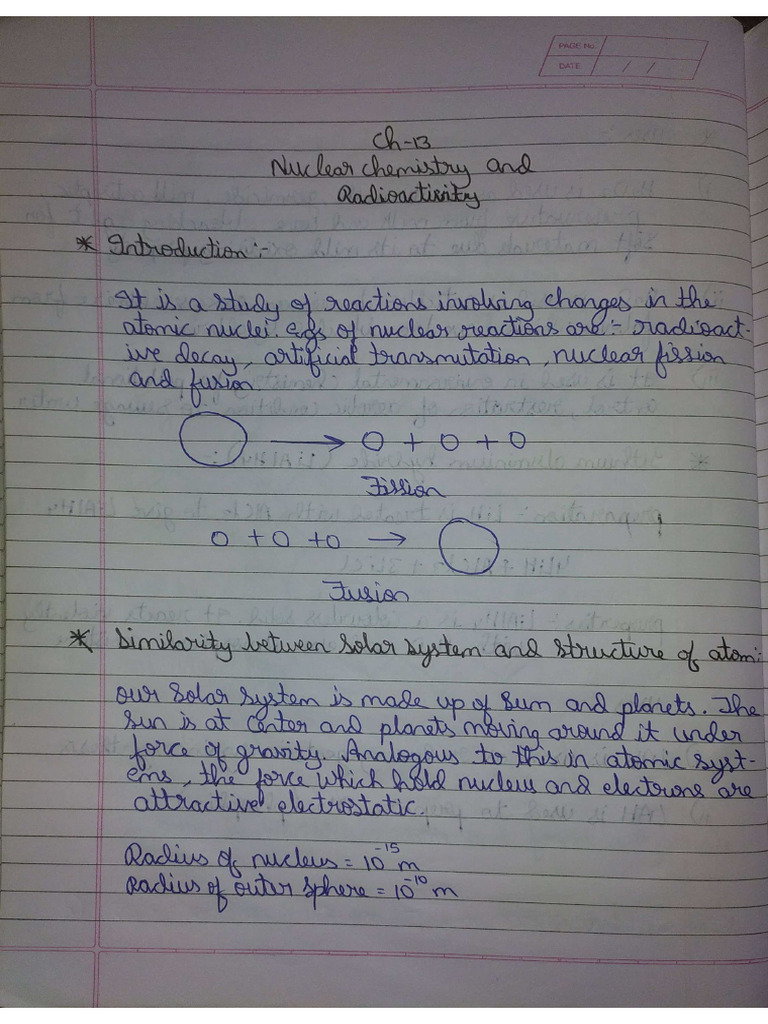 PAGE No.
DATE / /
Ch-13
Nuclear chemistry and
Radioactivity
* Introduction :-
It is a study of reactions involving changes in the
atomic nuclei. Egs of nuclear reactions are :- radioact-
ive decay, artificial transmutation, nuclear fission
and fusion.
→ O + O + O
Fission
O + O + O →
Fusion
* Similarity between solar system and structure of atom:
Our solar system is made up of sun and planets. The
sun is at center and planets moving around it under
force of gravity. Analogous to this in atomic syst-
ems, the force which hold nucleus and electrons are
attractive electrostatic.
Radius of nucleus = 10⁻¹⁵ m
Radius of outer sphere = 10⁻¹⁰ m